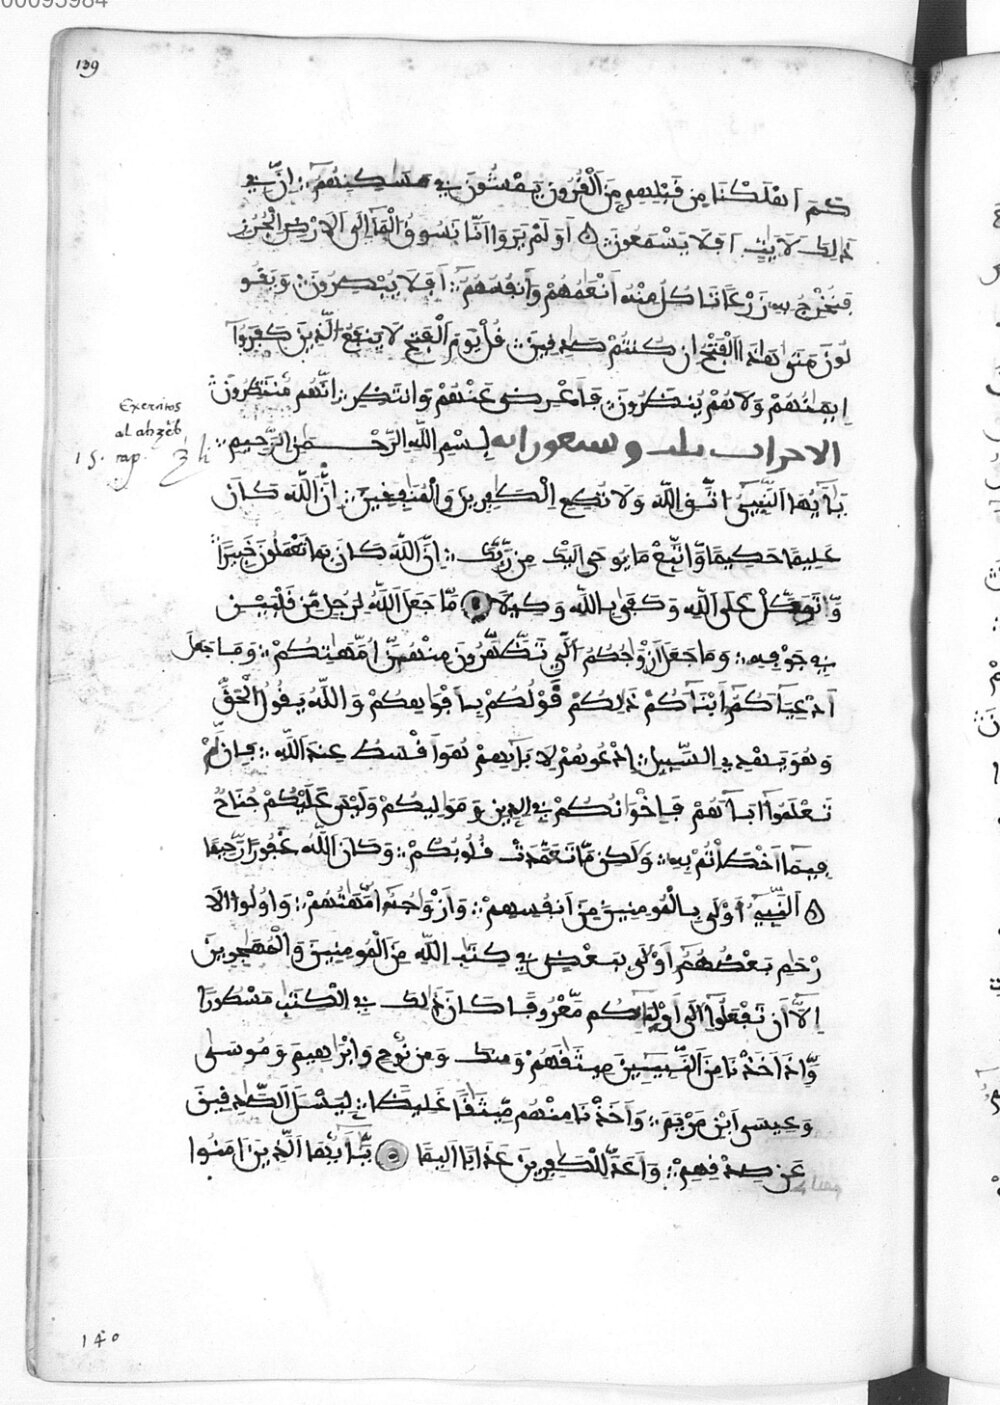 00095984
139
كَمَ اَهْلَكْنَا مِن قَبْلِهِم مِّنَ اَلْقُرُونِ يَمْشُونَ فِي مَسَٰكِنِهِمُۥ إِنَّ فِي
ذَٰلِكَ لَأَيَٰتٍ اَفَلَا يَسْمَعُونَ اَوَلَمْ يَرَوَا اَنَّا نَسُوقُ اُلْمَآءَ اِلَى اَلَارْضِ اِلْجُرُزِ
فَنُخْرِجُ بِهِۦ زَرْعاً تَاكُلُ مِنْهُ أَنْعَٰمُهُمْ وَأَنفُسُهُمُۥ أَفَلَا يُبْصِرُونَ وَيَقُو
لُونَ مَتَىٰ هَٰذَا اَلْفَتْحُ إِن كُنتُمْ صَٰدِقِينَ قُلْ يَوْمَ اَلْفَتْحِ لَا يَنفَعُ الَّذِينَ كَفَرُوٓاْ
اِيمَٰنُهُمْ وَلَا هُمْ يُنظَرُونَ فَأَعْرِضْ عَنْهُمْ وَانتَظِرِ اِنَّهُم مُّنتَظِرُونَ
Exercitos
al ahzeb
الاحزاب بِسْمِ اِللَّهِ اِلرَّحْمَٰنِ اِلرَّحِيمِ
يَٰٓأَيُّهَا اَلنَّبِيٓءُ اتَّقِ اِللَّهَ وَلَا تُطِعِ اِلْكَٰفِرِينَ وَالْمُنَٰفِقِينَ إِنَّ اَللَّهَ كَانَ
عَلِيماً حَكِيماً وَاتَّبِعْ مَا يُوحَىٰ إِلَيْكَ مِن رَّبِّكَ إِنَّ اَللَّهَ كَانَ بِمَا تَعْمَلُونَ خَبِيراً
وَتَوَكَّلْ عَلَى اَللَّهِ وَكَفَىٰ بِاللَّهِ وَكِيلاً مَّا جَعَلَ اَللَّهُ لِرَجُلٍ مِّن قَلْبَيْنِ
فِي جَوْفِهِۦ وَمَا جَعَلَ أَزْوَٰجَكُمُ اُلَّٰٓي تَظَّهَّرُونَ مِنْهُنَّ أُمَّهَٰتِكُمْ وَمَا جَعَلَ
أَدْعِيَآءَكُمُۥ أَبْنَآءَكُمْ ذَٰلِكُمْ قَوْلُكُمْ بِأَفْوَاهِكُمْ وَاللَّهُ يَقُولُ الْحَقَّ
وَهُوَ يَهْدِي اِلسَّبِيلَ اِدْعُوهُمْ لِأَبَآئِهِمْ هُوَ أَقْسَطُ عِندَ اَللَّهِ فَإِن لَّمْ
تَعْلَمُوٓاْ ءَابَآءَهُمْ فَإِخْوَٰنُكُمْ فِي اِلدِّينِ وَمَوَٰلِيكُمْ وَلَيْسَ عَلَيْكُمْ جُنَاحٌ
فِيمَآ أَخْطَأْتُم بِهِۦ وَلَٰكِن مَّا تَعَمَّدَتْ قُلُوبُكُمْ وَكَانَ اَللَّهُ غَفُوراً رَّحِيماً
اَلنَّبِيٓءُ اَوْلَىٰ بِالْمُومِنِينَ مِنَ اَنفُسِهِمْ وَأَزْوَٰجُهُۥٓ أُمَّهَٰتُهُمْ وَأُوْلُواْ الَا
رْحَامِ بَعْضُهُمُۥ أَوْلَىٰ بِبَعْضٍ فِي كِتَٰبِ اِللَّهِ مِنَ اَلْمُومِنِينَ وَالْمُهَٰجِرِينَ
إِلَّآ أَن تَفْعَلُوٓاْ إِلَىٰٓ أَوْلِيَآئِكُم مَّعْرُوفاً كَانَ ذَٰلِكَ فِي اِلْكِتَٰبِ مَسْطُوراً
وَإِذَ اَخَذْنَا مِنَ اَلنَّبِيٓـِٕينَ مِيثَٰقَهُمْ وَمِنكَ وَمِن نُّوحٍ وَإِبْرَٰهِيمَ وَمُوسَىٰ
وَعِيسَى اَبْنِ مَرْيَمَ وَأَخَذْنَا مِنْهُم مِّيثَٰقاً غَلِيظاً لِّيَسْـَٔلَ اَلصَّٰدِقِينَ
عَن صِدْقِهِمْ وَأَعَدَّ لِلْكَٰفِرِينَ عَذَاباً اَلِيماً يَٰٓأَيُّهَا اَلَّذِينَ ءَامَنُواْ
140